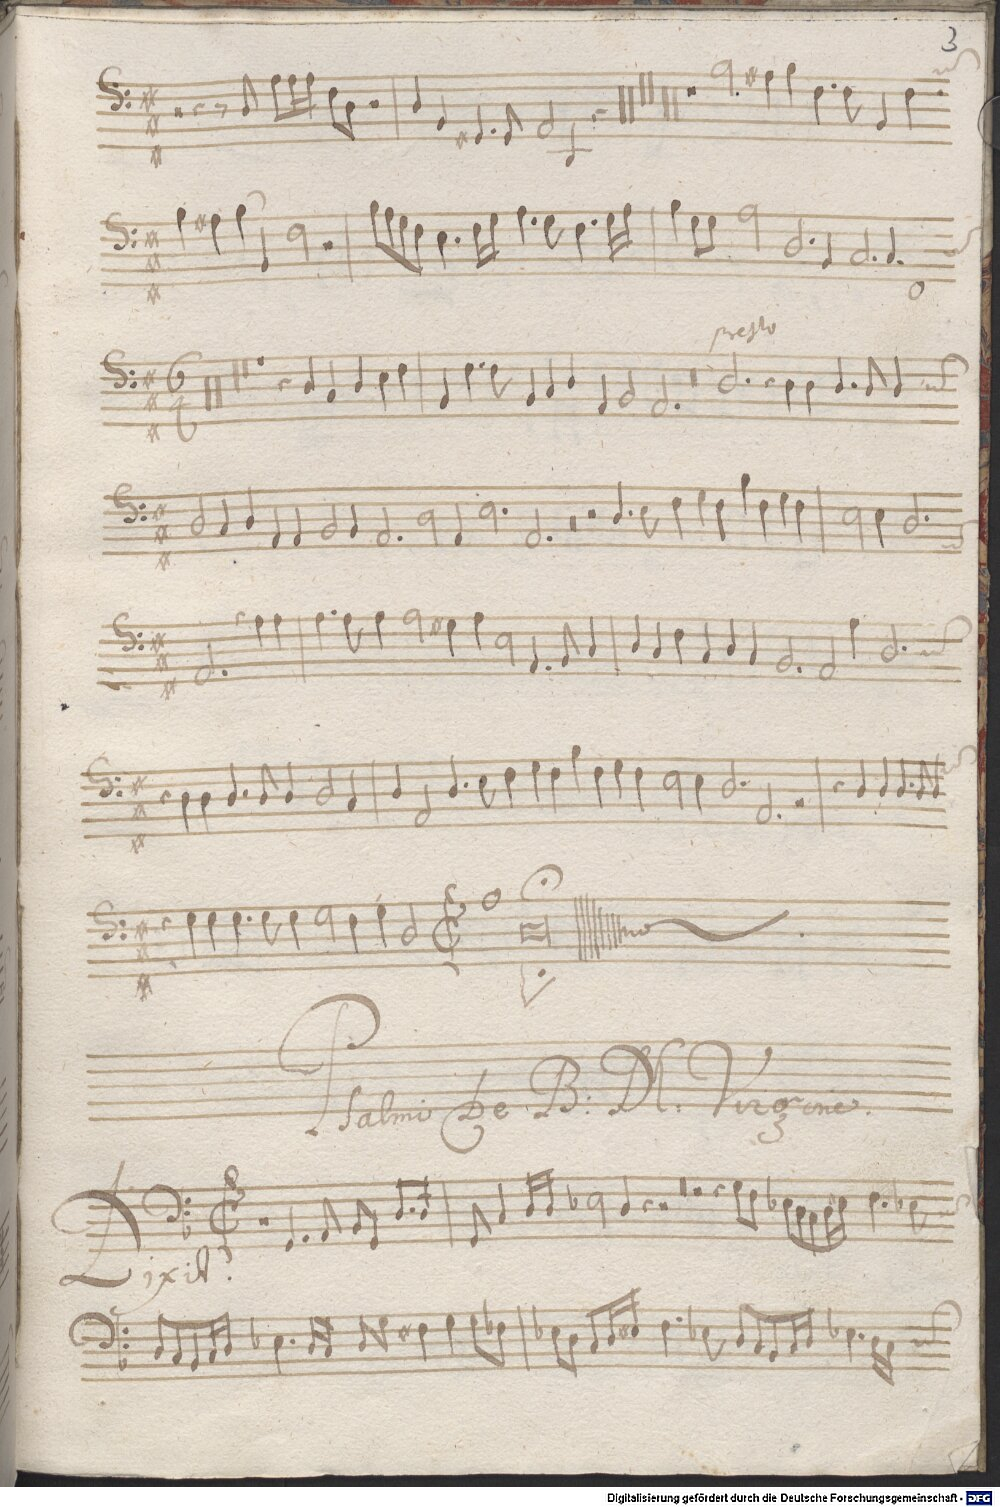 3
presto
Psalmi De B: M. Virgine.
Dixit.
Digitalisierung gefördert durch die Deutsche Forschungsgemeinschaft - DFG